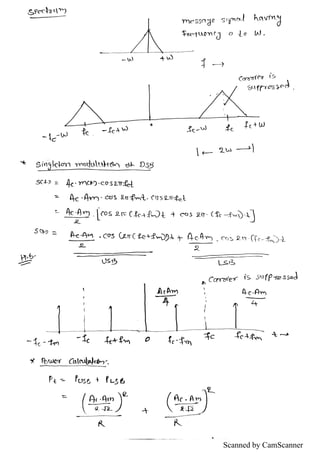 Spectrum
message signal having
frequency 0 to W.
-W +W
f →
Carrier is
suppressed.
-fc-W fc -fc+W fc-W fc fc+W
|← 2W →|
* Singleton modulation of DSB
S(t) = Ac·m(t)·cos2πfct
= Ac·Am·cos 2πfmt·cos2πfct
= Ac·Am/2 [cos 2π(fc+fm)t + cos 2π(fc-fm)t]
S(t) = Ac·Am/2 · cos (2π(fc+fm))t + AcAm/2 · cos 2π(fc-fm)t
USB LSB
Carrier is suppressed
AcAm/4 Ac·Am/4
-fc-fm -fc fc+fm 0 fc-fm fc fc+fm t →
* Power Calculation:
Pt = PUSB + PLSB
= (Ac·Am/2·√2)²/R + (Ac·Am/2·√2)²/R
Scanned by CamScanner